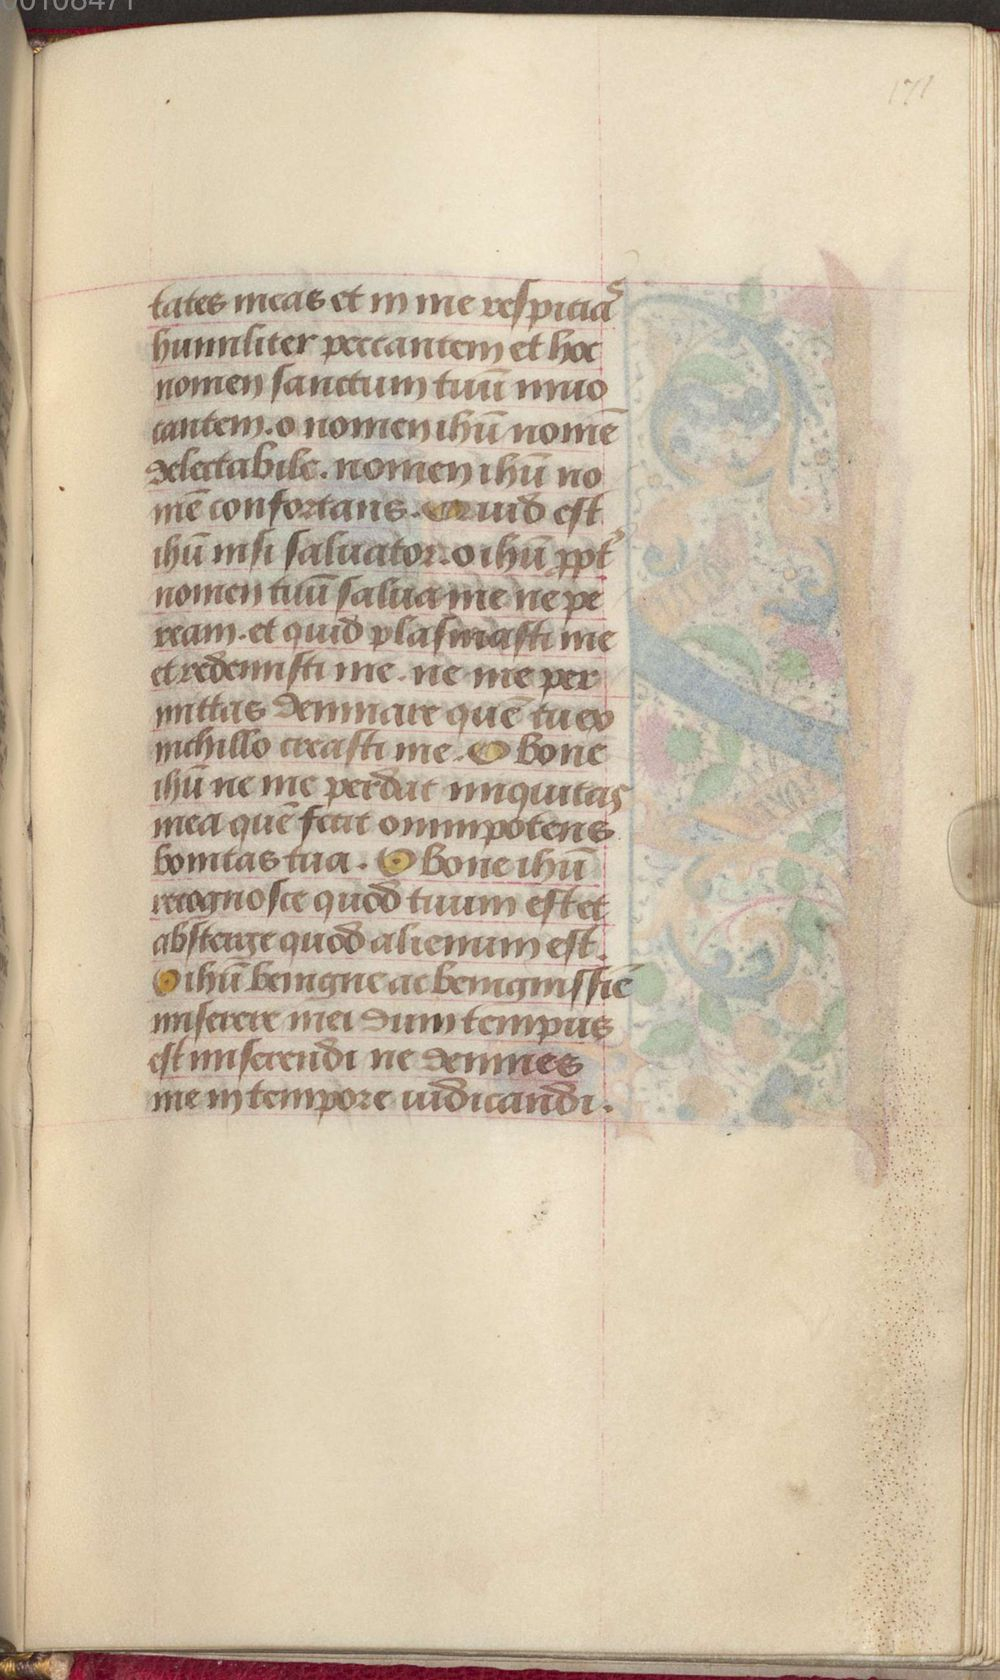 00108471
171
tates meas et in me respicias
humiliter peccantem et hoc
nomen sanctum tuū inuo
cantem. o nomen ihū nomē
delectabile. nomen ihū no
mē confortans. Quid est
ihū nisi saluator. o ihū ppt
nomen tuū salua me ne pe
ream. et quid plasmasti me
et redemisti me. ne me per
mittas demnare quē tu ex
nichillo creasti me. O bone
ihū ne me perdat iniquitas
mea quē fecit omnipotens
bonitas tua. O bone ihū
recognosce quod tuum est et
absterge quod alienum est.
O ihū benigne ac benignissīē
miserere mei dum tempus
est miserendi ne demnes
me in tempore iudicandi.